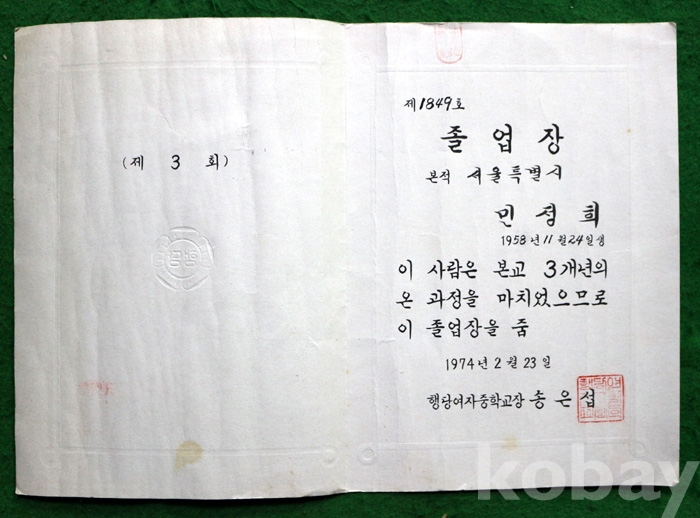 (제 3 회)
제1849호
졸업장
본적 서울특별시
민정희
1958년 11월 24일생
이 사람은 본교 3개년의
온 과정을 마치었으므로
이 졸업장을 줌
1974년 2월 23일
행당여자중학교장 송은섭
kobay